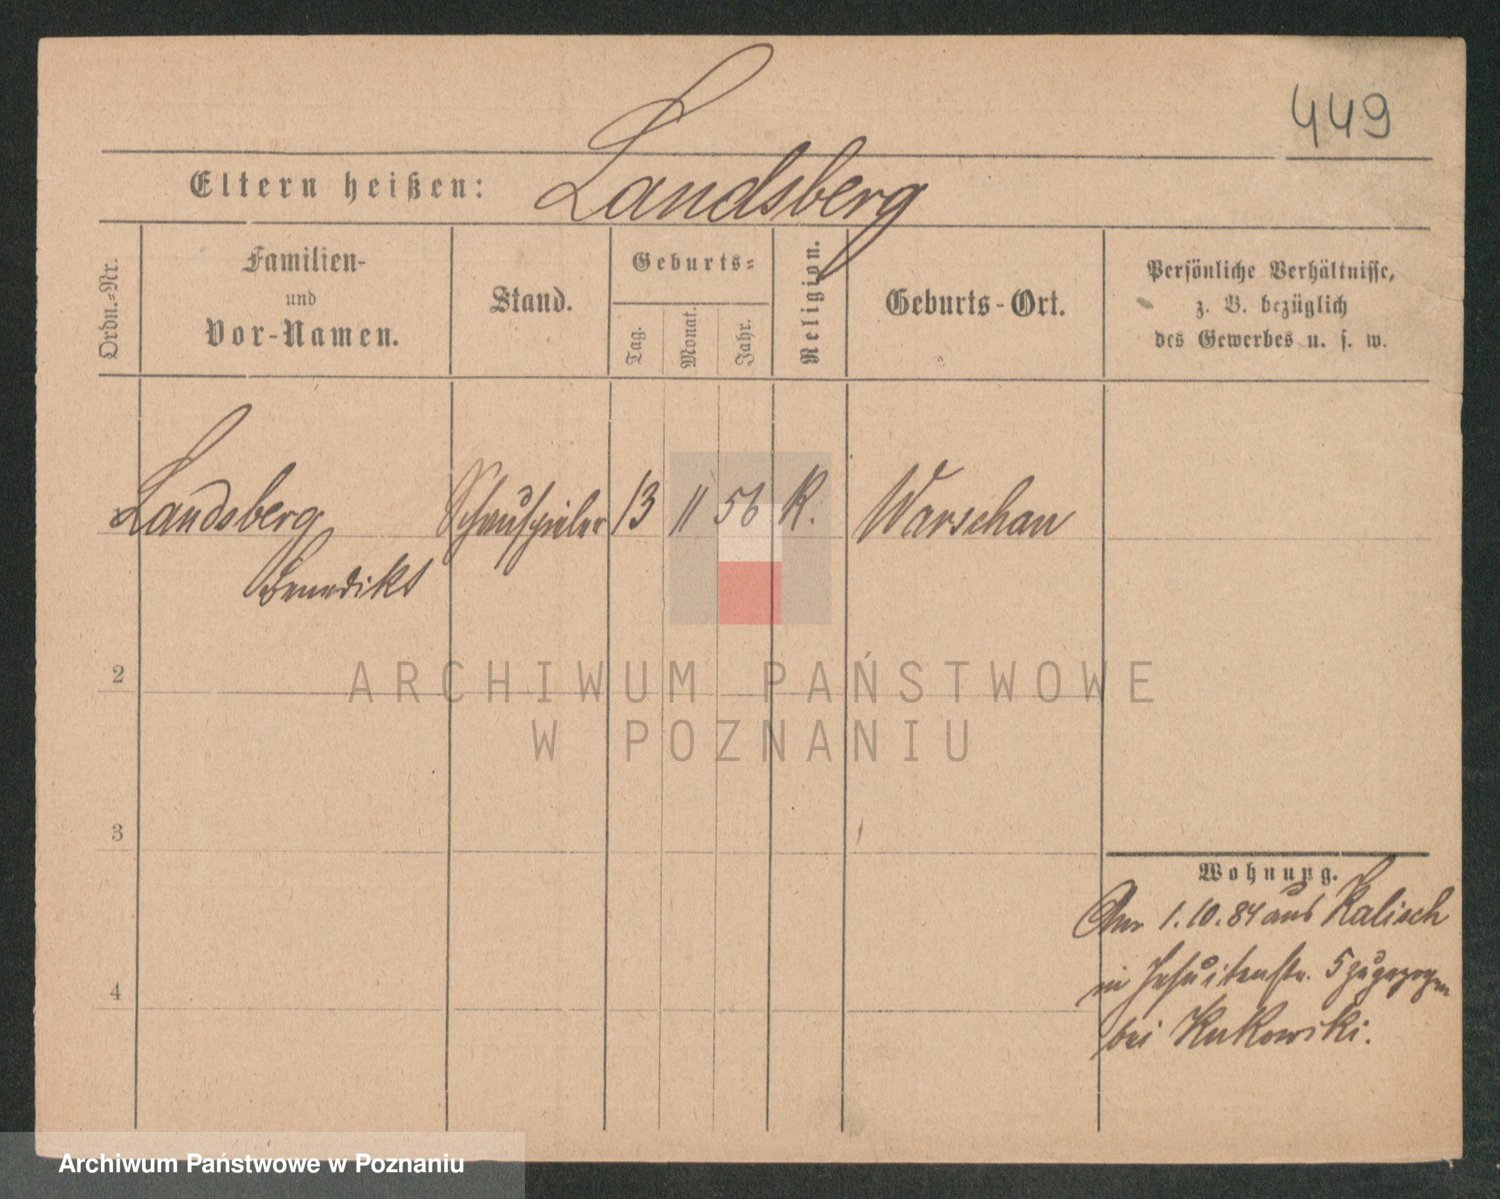 449
Eltern heißen: Landsberg
Ordn.=Nr.
Familien-
und
Vor-Namen.
Stand.
Geburts=
Tag.
Monat.
Jahr.
Religion.
Geburts-Ort.
Persönliche Verhältnisse,
z. B. bezüglich
des Gewerbes u. s. w.
Landsberg Schauspieler 13 11 56 K. Warschau
Benedikt
2
ARCHIWUM PAŃSTWOWE
W POZNANIU
3
Wohnung.
Am 1.10.84 aus Kalisch
in Jesuitenstr. 5 zugezogen
4
bei Kukowski.
Archiwum Państwowe w Poznaniu